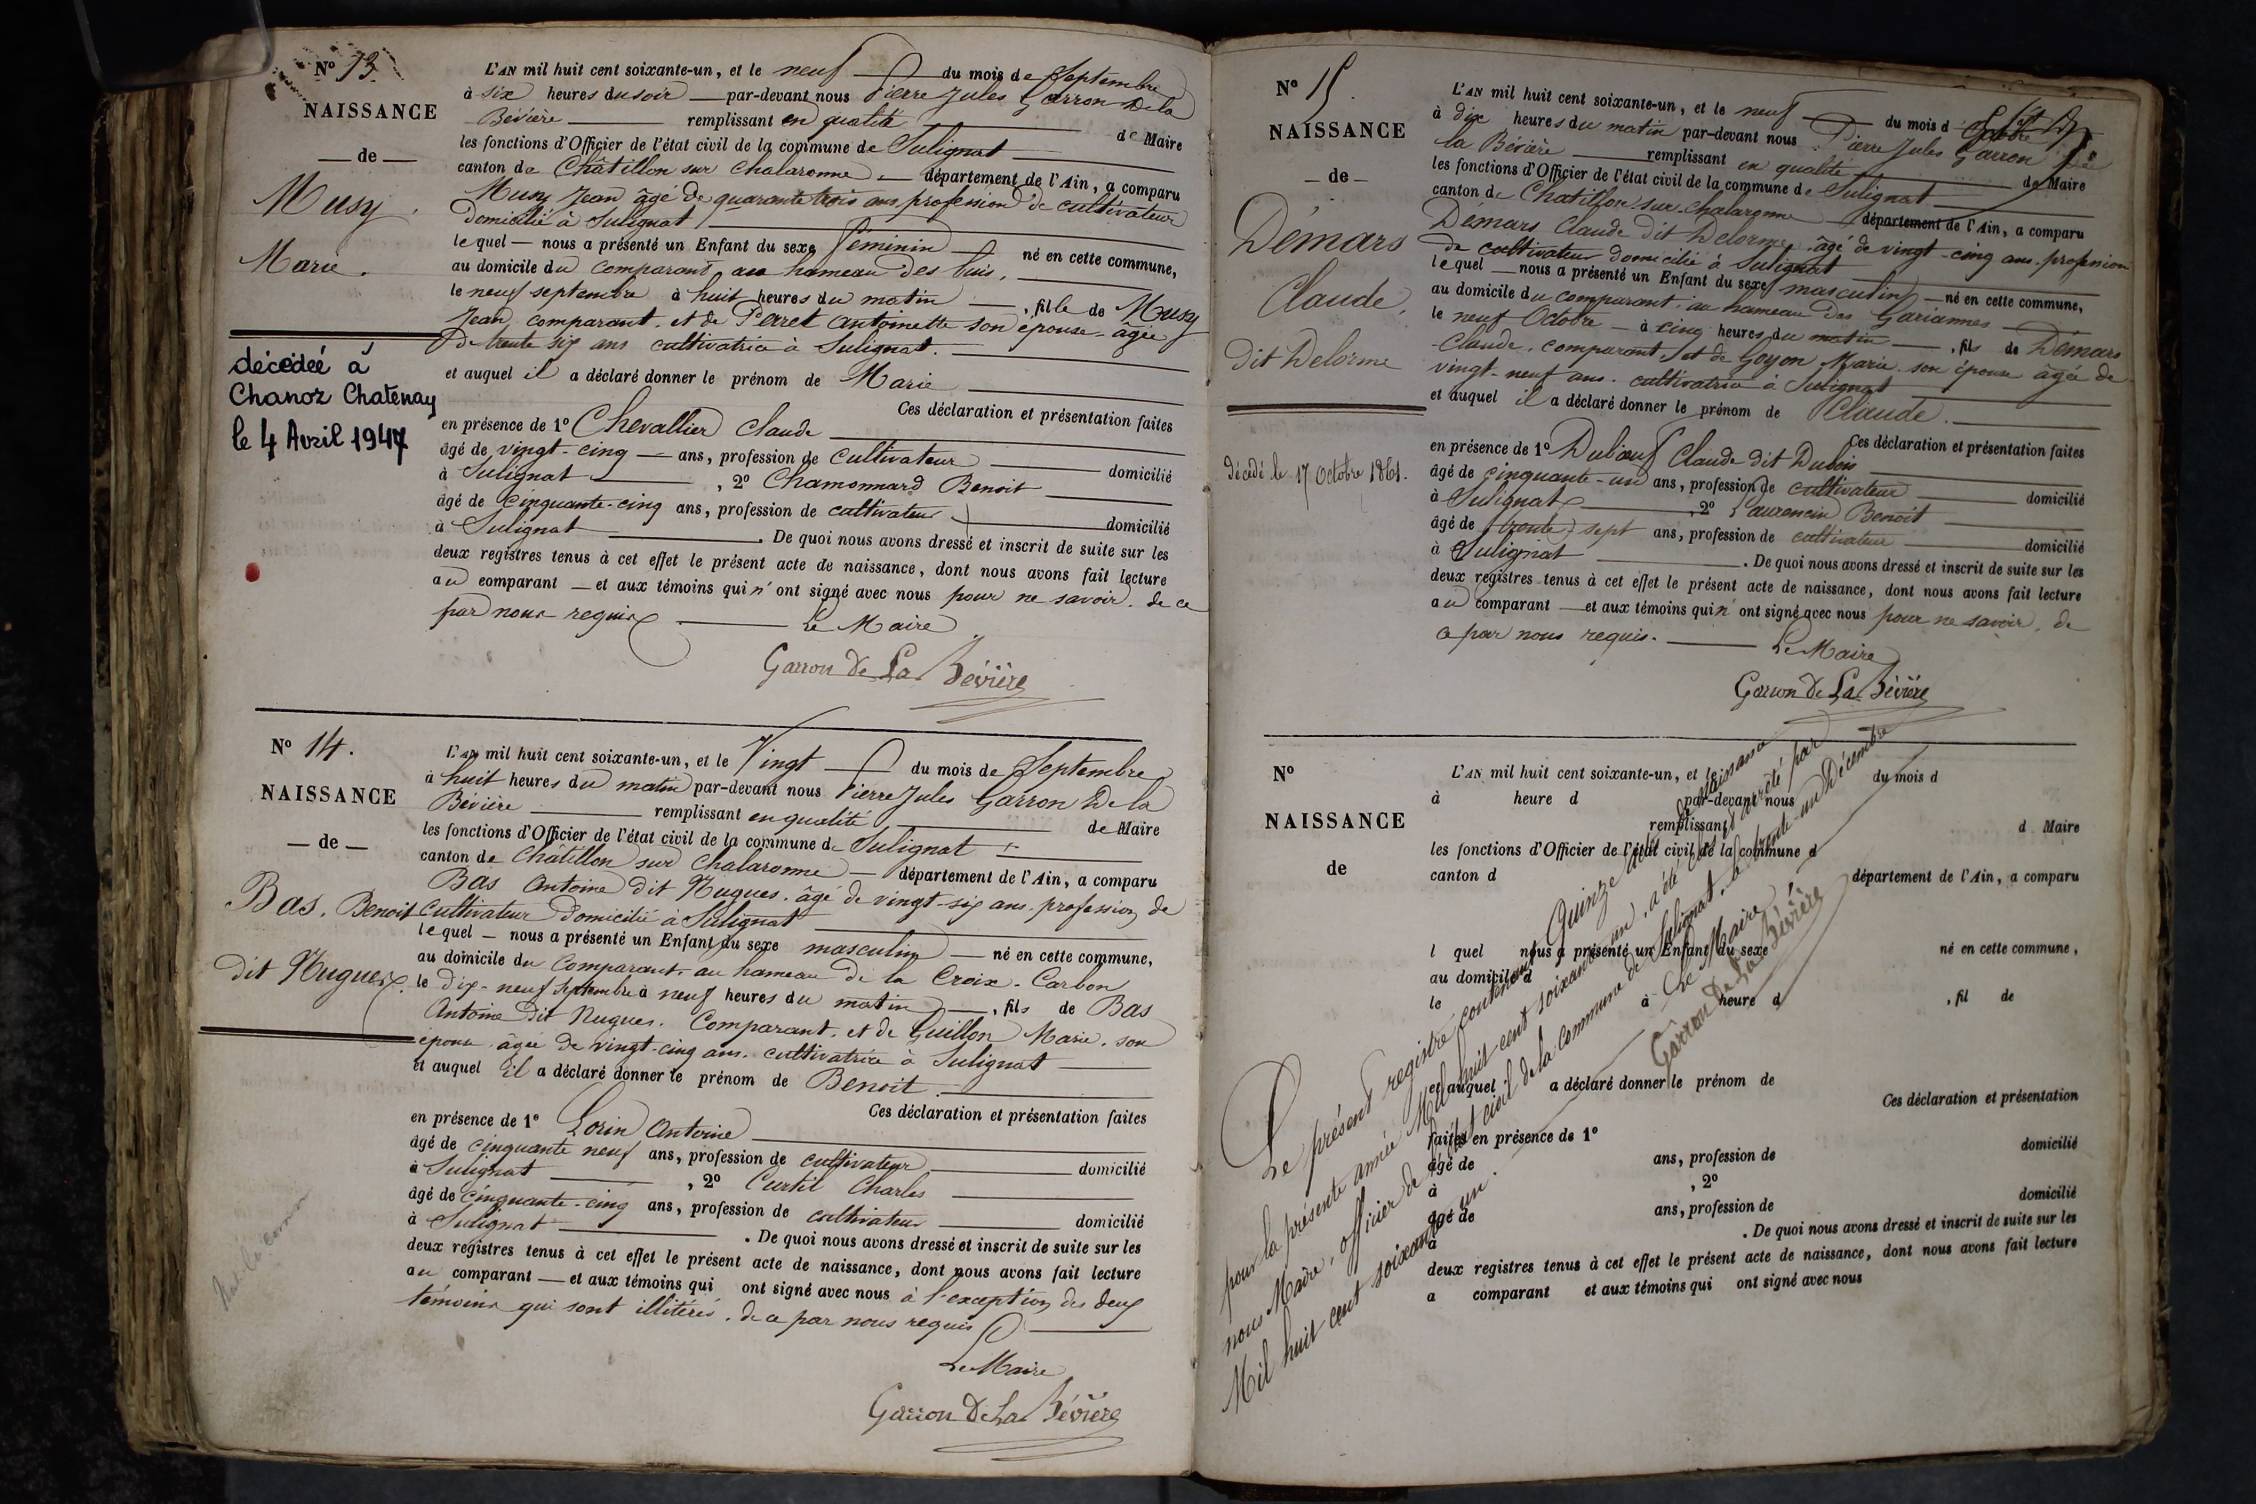 No 13
NAISSANCE
— de —
Musy
Marie.
décédée à
Chanoz Chatenay
le 4 Avril 1947
L'AN mil huit cent soixante-un, et le neuf du mois de Septembre
à six heures du soir par-devant nous Pierre Jules Garron De la
Bévière remplissant en qualité de Maire
les fonctions d'Officier de l'état civil de la commune de Sulignat
canton de Châtillon sur Chalaronne département de l'Ain, a comparu
Musy Jean âgé de quarante trois ans profession de cultivateur
domicilié à Sulignat
lequel — nous a présenté un Enfant du sexe féminin né en cette commune,
au domicile du comparant au hameau des buis,
le neuf septembre à huit heures du matin , fille de Musy
Jean, comparant, et de Perret Antoinette son épouse, âgée
de trente six ans cultivatrice à Sulignat.
et auquel il a déclaré donner le prénom de Marie
Ces déclaration et présentation faites
en présence de 1º Chevallier Claude
âgé de vingt-cinq ans, profession de cultivateur domicilié
à Sulignat , 2º Chamonnard Benoit
âgé de cinquante-cinq ans, profession de cultivateur domicilié
à Sulignat . De quoi nous avons dressé et inscrit de suite sur les
deux registres tenus à cet effet le présent acte de naissance, dont nous avons fait lecture
au comparant — et aux témoins qui n'ont signé avec nous pour ne savoir, de ce
par nous requis Le Maire
Garron De La Bévière
No 14.
NAISSANCE
— de —
Bas, Benoit
dit Nugues.
L'AN mil huit cent soixante-un, et le Vingt du mois de Septembre
à huit heures du matin par-devant nous Pierre Jules Garron De la
Bévière remplissant en qualité de Maire
les fonctions d'Officier de l'état civil de la commune de Sulignat
canton de Châtillon sur Chalaronne — département de l'Ain, a comparu
Bas Antoine dit Nugues, âgé de vingt-six ans, profession de
cultivateur domicilié à Sulignat
lequel — nous a présenté un Enfant du sexe masculin — né en cette commune,
au domicile du comparant au hameau de la Croix-Carbon
le dix-neuf septembre à neuf heures du matin , fils de Bas
Antoine dit Nugues, comparant, et de Guillon Marie, son
épouse, âgée de vingt-cinq ans, cultivatrice à Sulignat
et auquel il a déclaré donner le prénom de Benoit.
Ces déclaration et présentation faites
en présence de 1º Lorin Antoine
âgé de cinquante neuf ans, profession de cultivateur domicilié
à Sulignat , 2º Curtil Charles
âgé de cinquante-cinq ans, profession de cultivateur domicilié
à Sulignat . De quoi nous avons dressé et inscrit de suite sur les
deux registres tenus à cet effet le présent acte de naissance, dont nous avons fait lecture
au comparant — et aux témoins qui ont signé avec nous à l'exception des deux
témoins qui sont illitérés, de ce par nous requis
Le Maire
Garron De La Bévière
No 15.
NAISSANCE
— de —
Démars
Claude,
dit Delorme
décédé le 17 Octobre 1861.
L'AN mil huit cent soixante-un, et le neuf du mois d'Octobre
à dix heures du matin par-devant nous Pierre Jules Garron De
la Bévière remplissant en qualité de Maire
les fonctions d'Officier de l'état civil de la commune de Sulignat
canton de Chatillon sur Chalaronne département de l'Ain, a comparu
Démars Claude dit Delorme, âgé de vingt-cinq ans, profession
de cultivateur domicilié à Sulignat
lequel — nous a présenté un Enfant du sexe masculin — né en cette commune,
au domicile du comparant, au hameau des Gariannes
le neuf Octobre — à cinq heures du matin , fils de Démars
Claude, comparant, et de Goyon Marie, son épouse âgée de
vingt-neuf ans, cultivatrice à Sulignat
et auquel il a déclaré donner le prénom de Claude.
Ces déclaration et présentation faites
en présence de 1º Dubœuf Claude dit Dubois
âgé de cinquante-un ans, profession de cultivateur domicilié
à Sulignat , 2º Laurencin Benoit
âgé de trente sept ans, profession de cultivateur domicilié
à Sulignat . De quoi nous avons dressé et inscrit de suite sur les
deux registres tenus à cet effet le présent acte de naissance, dont nous avons fait lecture
au comparant — et aux témoins qui n'ont signé avec nous pour ne savoir, de
ce par nous requis. Le Maire
Garron De La Bévière
No
NAISSANCE
de
L'AN mil huit cent soixante-un, et le du mois d
à heure d par-devant nous
remplissant d Maire
les fonctions d'Officier de l'état civil de la commune d
canton d département de l'Ain, a comparu
l quel nous a présenté un Enfant du sexe né en cette commune,
au domicile d
le à heure d , fil de
et auquel a déclaré donner le prénom de
Ces déclaration et présentation
faites en présence de 1º
âgé de ans, profession de domicilié
à , 2º
âgé de ans, profession de domicilié
à . De quoi nous avons dressé et inscrit de suite sur les
deux registres tenus à cet effet le présent acte de naissance, dont nous avons fait lecture
a comparant et aux témoins qui ont signé avec nous
Le présent registre contenant Quinze actes de naissance
pour la présente année Mil huit cent soixante un, a été clos et arrêté par
nous Maire, officier de l'état civil de la commune de Sulignat, le trente-un Décembre
Mil huit cent soixante un.
Le Maire
Garron De La Bévière